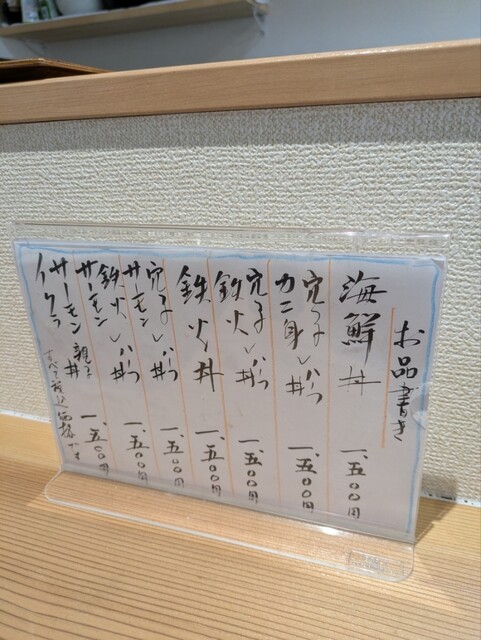 お品書き
海鮮丼 一、五〇〇円
穴子
カニ身 ハーフ丼 一、五〇〇円
穴子
鉄火 ハーフ丼 一、五〇〇円
鉄火丼 一、五〇〇円
穴子
サーモン ハーフ丼 一、五〇〇円
鉄火
サーモン ハーフ丼 一、五〇〇円
サーモン
イクラ 親子丼 一、五〇〇円
すべて税込価格です